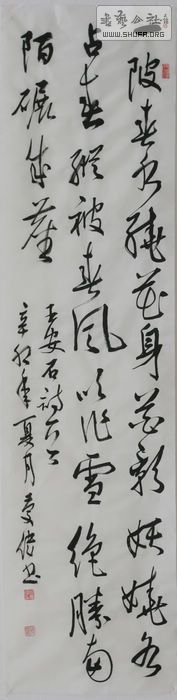 书艺公社
WWW.SHUFA.ORG
陂春水繞花身花影妖嬈各
占春縱被春風吹作雪絕勝南
陌碾成塵
王安石詩
辛卯年夏月 書